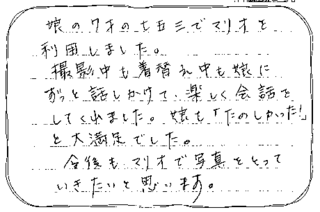 娘の7才の七五三でマリオを
利用しました。
撮影中も着替え中も娘に
ずっと話しかけて、楽しく会話を
してくれました。娘も「たのしかった!」
と大満足でした。
今後もマリオで写真をとって
いきたいと思います。